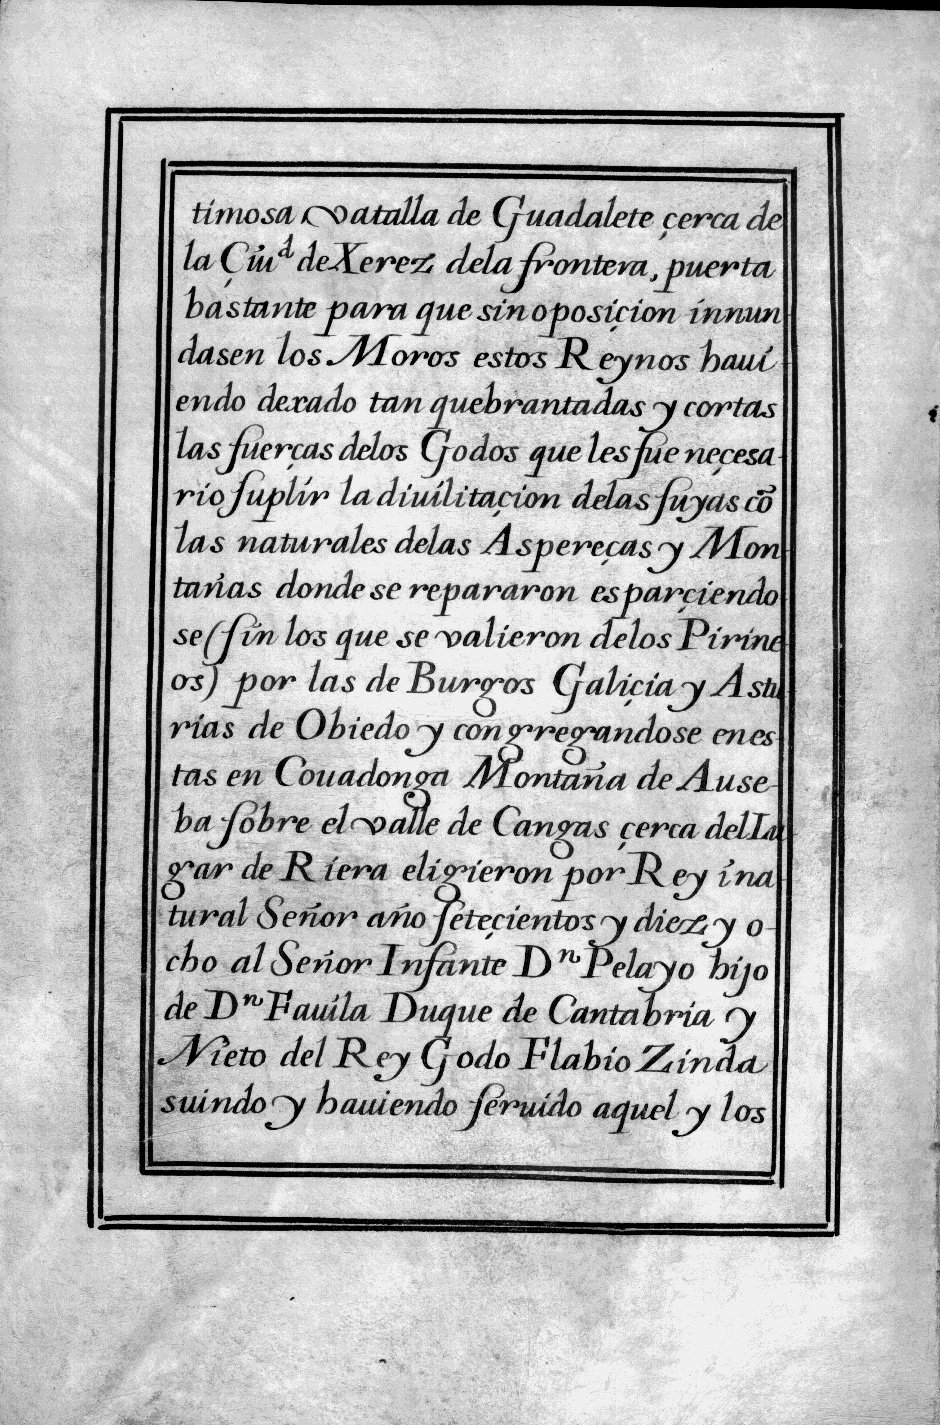 timosa vatalla de Guadalete çerca de
la Çiud de Xerez dela frontera, puerta
bastante para que sin oposiçion innun
dasen los Moros estos Reynos haui
endo dexado tan quebrantadas y cortas
las fuerças delos Godos que les fue neçesa-
rio suplir la diuilitaçion delas suyas cõ
las naturales delas Aspereças y Mon-
tañas donde se repararon esparçiendo
se (sin los que se valieron delos Pirine
os) por las de Burgos Galiçia y Astu
rias de Obiedo y congregandose en es
tas en Couadonga Montaña de Ause-
ba sobre el valle de Cangas çerca del Lu
gar de Riera eligieron por Rey i na
tural Señor año seteçientos y diez y o-
cho al Señor Infante Dn Pelayo hijo
de Dn Fauila Duque de Cantabria y
Nieto del Rey Godo Flabio Zinda
suindo y hauiendo seruido aquel y los